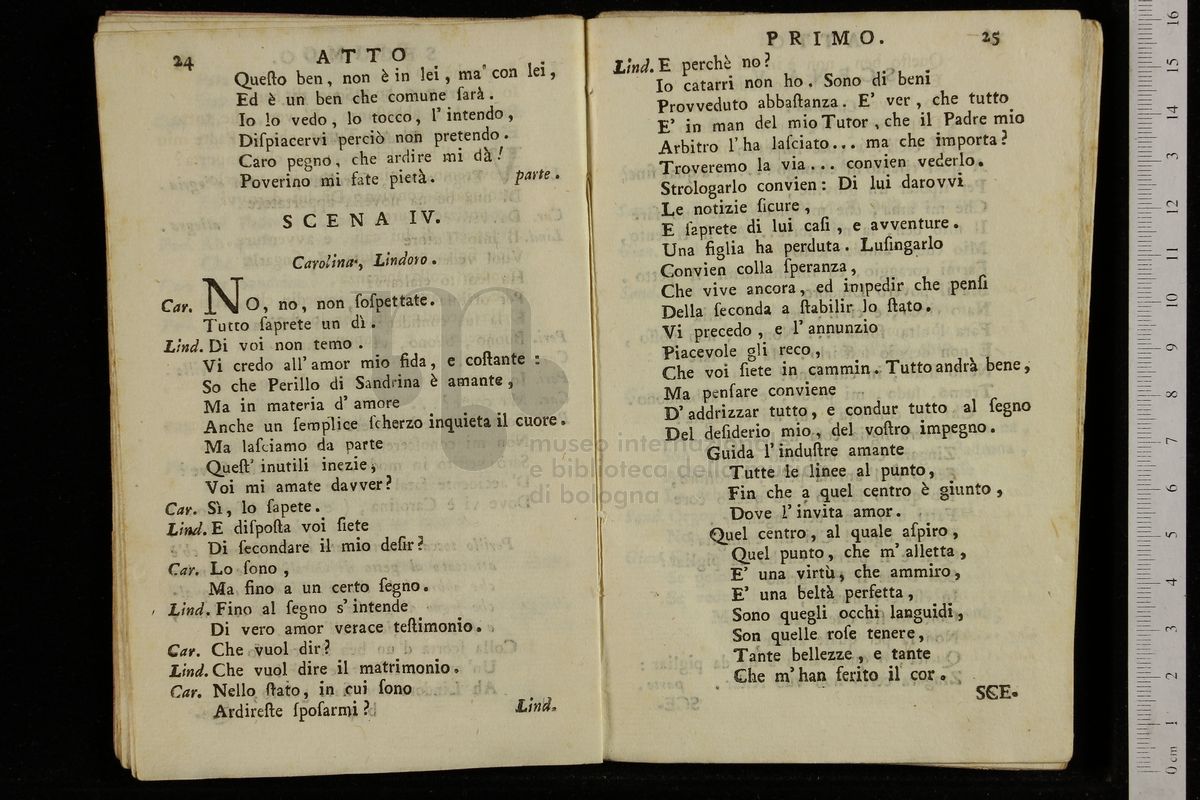 24 ATTO
Queſto ben, non è in lei, ma con lei,
Ed è un ben che comune ſarà.
Io lo vedo, lo tocco, l'intendo,
Diſpiacervi perciò non pretendo.
Caro pegno, che ardire mi dà!
Poverino mi fate pietà. parte.
SCENA IV.
Carolina, Lindoro.
Car. NO, no, non ſoſpettate.
Tutto ſaprete un dì.
Lind. Di voi non temo.
Vi credo all'amor mio fida, e coſtante:
So che Perillo di Sandrina è amante,
Ma in materia d'amore
Anche un ſemplice ſcherzo inquieta il cuore.
Ma laſciamo da parte
Queſt' inutili inezie,
Voi mi amate davver?
Car. Sì, lo ſapete.
Lind. E diſpoſta voi ſiete
Di ſecondare il mio deſir?
Car. Lo ſono,
Ma fino a un certo ſegno.
Lind. Fino al ſegno s'intende
Di vero amor verace teſtimonio.
Car. Che vuol dir?
Lind. Che vuol dire il matrimonio.
Car. Nello ſtato, in cui ſono
Ardireſte ſpoſarmi?
Lind.
PRIMO. 25
Lind. E perchè no?
Io catarri non ho. Sono di beni
Provveduto abbaſtanza. E' ver, che tutto
E' in man del mio Tutor, che il Padre mio
Arbitro l'ha laſciato... ma che importa?
Troveremo la via... convien vederlo.
Strologarlo convien: Di lui darovvi
Le notizie ſicure,
E ſaprete di lui caſi, e avventure.
Una figlia ha perduta. Luſingarlo
Convien colla ſperanza,
Che vive ancora, ed impedir che penſi
Della ſeconda a ſtabilir lo ſtato.
Vi precedo, e l'annunzio
Piacevole gli reco,
Che voi ſiete in cammin. Tutto andrà bene,
Ma penſare conviene
D'addrizzar tutto, e condur tutto al ſegno
Del deſiderio mio, del voſtro impegno.
Guida l'induſtre amante
Tutte le linee al punto,
Fin che a quel centro è giunto,
Dove l'invita amor.
Quel centro, al quale aſpiro,
Quel punto, che m'alletta,
E' una virtù, che ammiro,
E' una beltà perfetta,
Sono quegli occhi languidi,
Son quelle roſe tenere,
Tante bellezze, e tante
Che m'han ferito il cor.
SCE.
museo internazionale
e biblioteca della musica
di bologna
0 cm 1 2 3 4 5 6 7 8 9 10 11 12 13 14 15 16